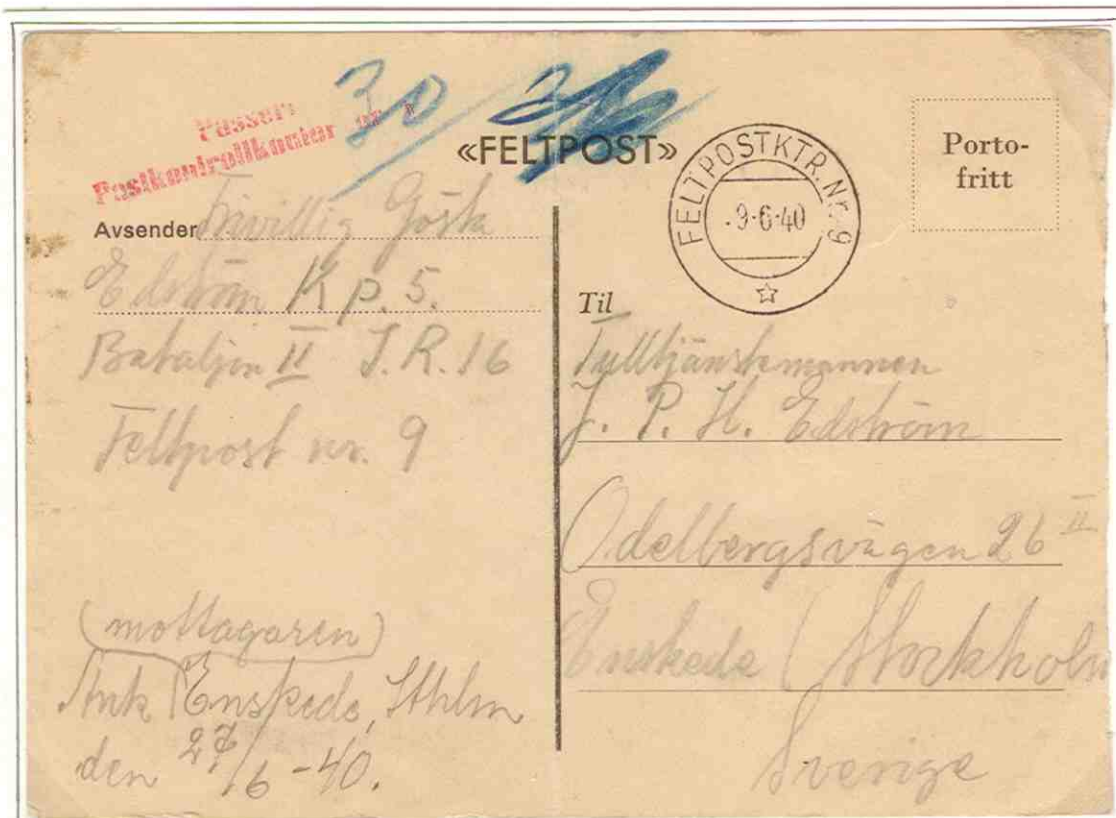 Passert
Postkontrollkontor nr
30/
«FELTPOST»
Porto-
fritt
FELTPOSTKTR. Nr. 9
-9-6-40
Avsender Frivillig Gösta
Edström Kp. 5.
Bataljon II J.R. 16
Feltpost nr. 9
(mottagaren)
Ank Enskede, Sthlm
den 27/6 -40.
Til
Tulltjänstemannen
J. P. H. Edström
Odelbergsvägen 26 II
Enskede (Stockholm
Sverige